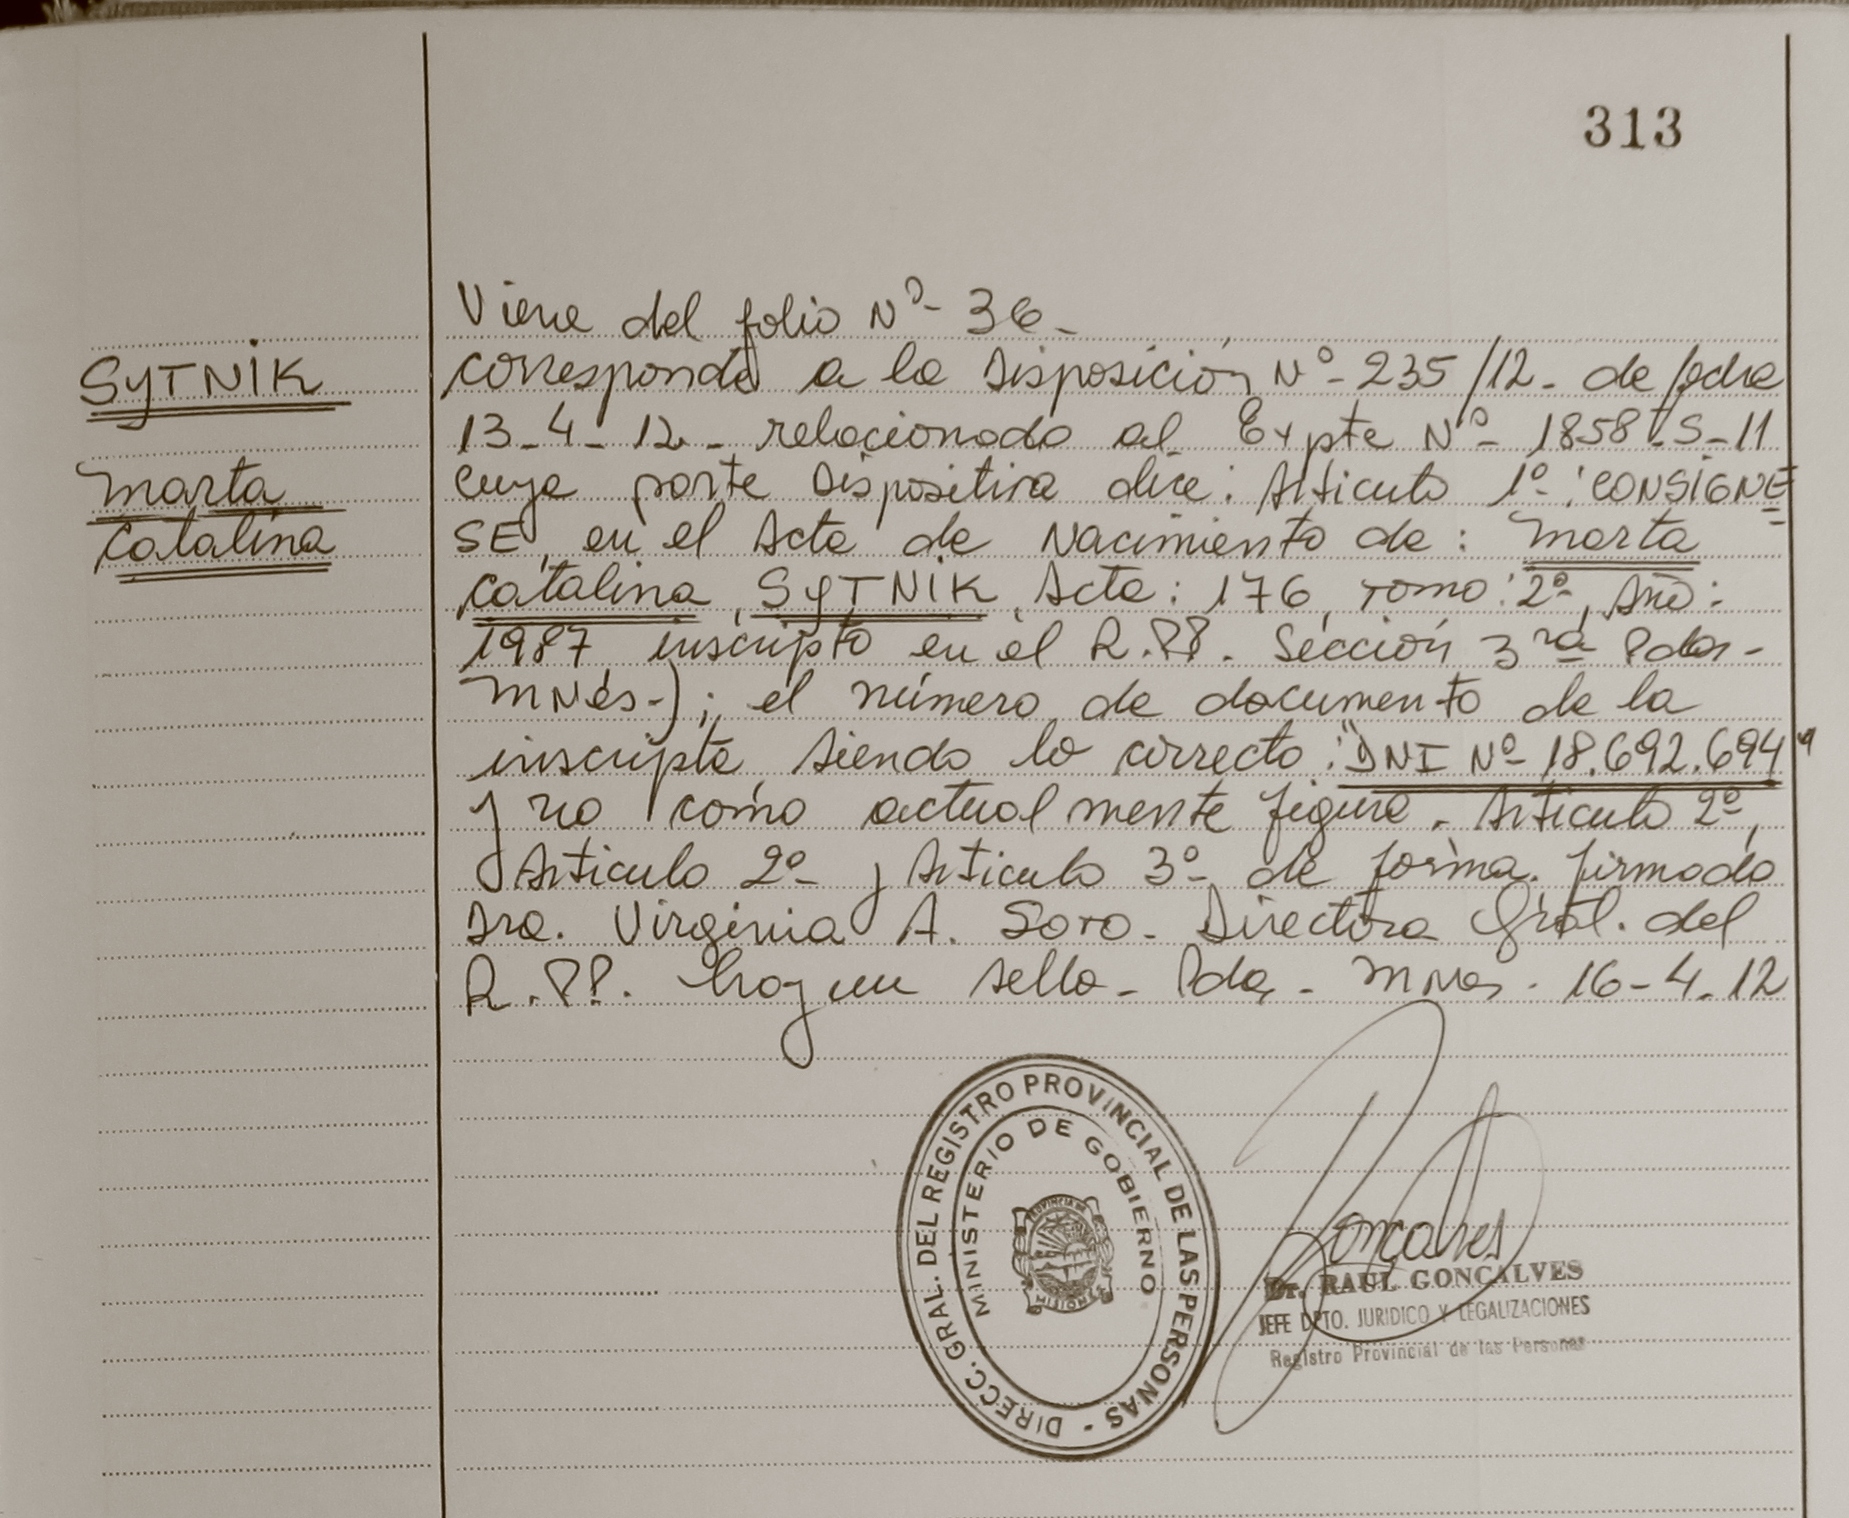 313
Viene del folio Nº- 36-
SYTNIK
Marta
Catalina
corresponde a la Disposición Nº- 235/12- de fecha
13-4-12- relacionado al Expte Nº- 1858-S-11
cuya parte Dispositiva dice: Articulo 1º: CONSIGNE
SE, en el Acta de Nacimiento de: Marta
Catalina, SYTNIK, Acta: 176, Tomo: 2º, Año:
1987, inscripto en el R.PP. Sección 3ra Pdas-
MNes-); el número de documento de la
inscripta, siendo lo correcto: "DNI Nº- 18.692.694"
y no como actualmente figura. Articulo 2º,
Articulo 2º- y Articulo 3º- de forma. firmado
Dra. Virginia A. Soro- Directora Gral. del
R.PP. hay un sello- Pdas- MNes- 16-4-12
DIRECC. GRAL. DEL REGISTRO PROVINCIAL DE LAS PERSONAS -
MINISTERIO DE GOBIERNO
PROVINCIA DE
MISIONES
Goncalves
Dr. RAUL GONCALVES
JEFE DPTO. JURIDICO Y LEGALIZACIONES
Registro Provincial de las Personas